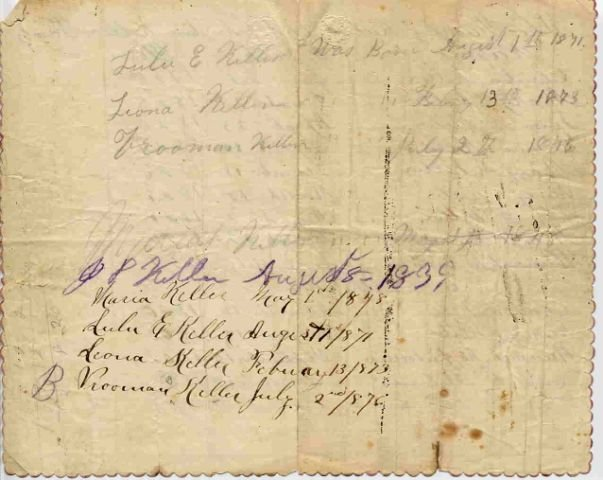 Lulu E Keller Was Born August 1st 1871
Leona Keller " 13th 1873
Vrooman Keller July 2nd 1876
Maria Keller May
J P Keller August 1839
Maria Keller May 1st/1848
Lulu E Keller August 1st/1871
Leona Keller Febuary 13/1873
B Vrooman Keller July 2nd/1876